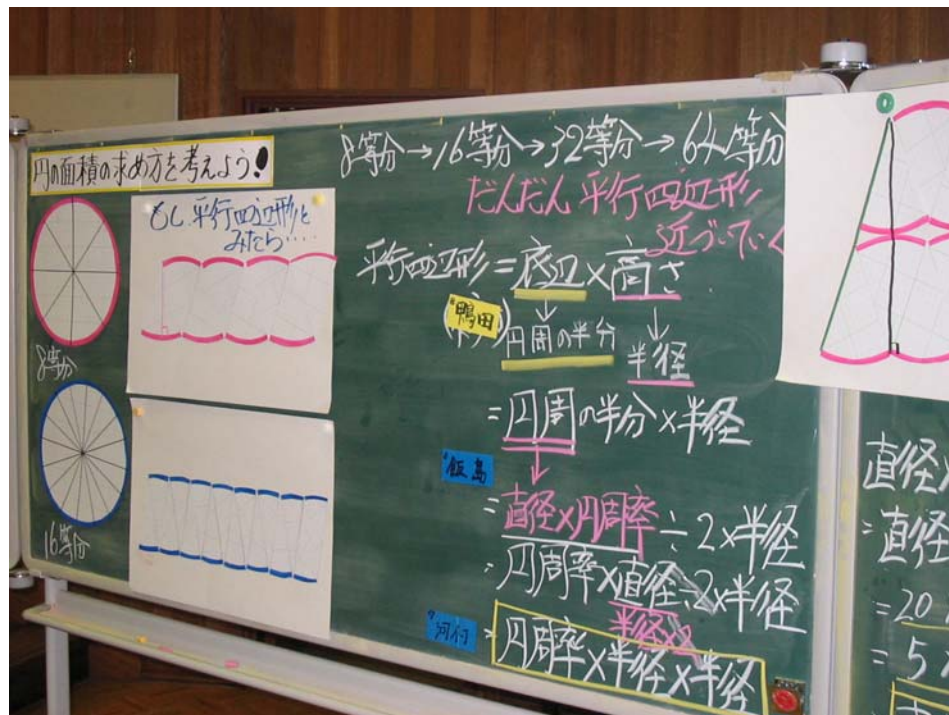 円の面積の求め方を考えよう!
8等分
16等分
もし平行四辺形と
みたら・・・・・
8等分→16等分→32等分→64等分
だんだん平行四辺形
近づいていく
平行四辺形=底辺×高さ
鴨田
円周の半分
半径
=円周の半分×半径
飯島
=直径×円周率÷2×半径
=円周率×直径÷2×半径
半径×2
河村
=円周率×半径×半径
直径
=直径
=20
=5